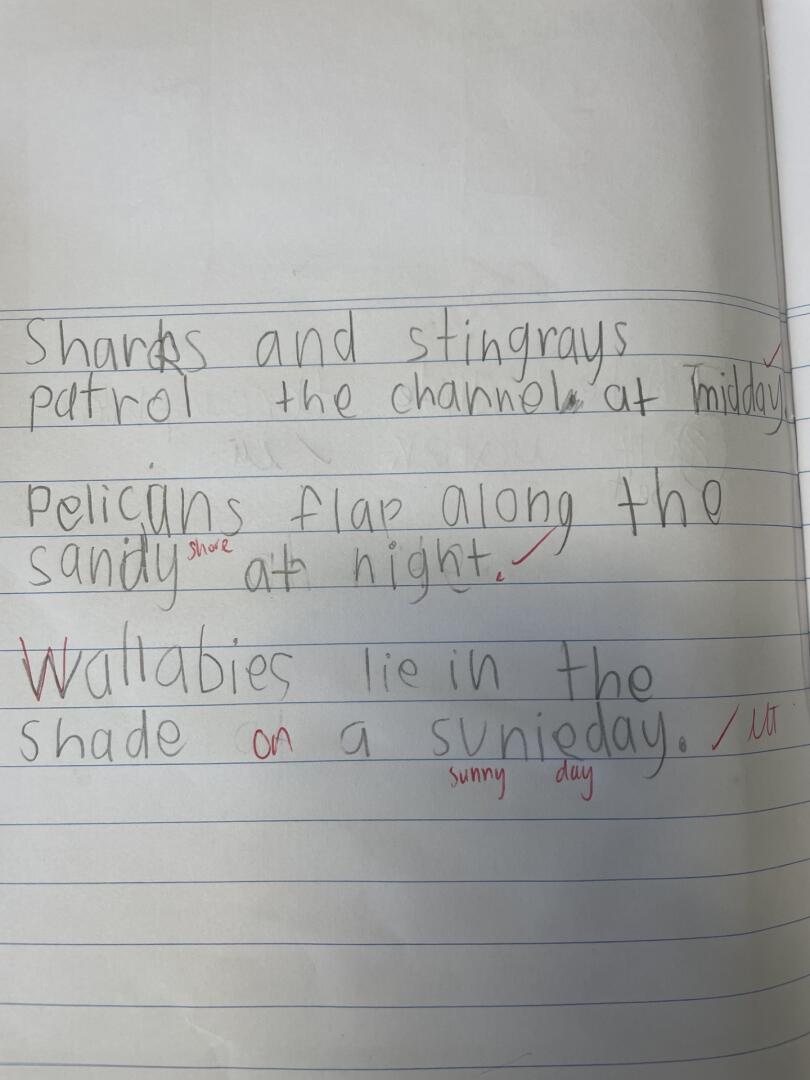 Sharks and stingrays
patrol the channel at midday.
Pelicans flap along the
sandy shore at night.
Wallabies lie in the
shade on a sunieday.
sunny day